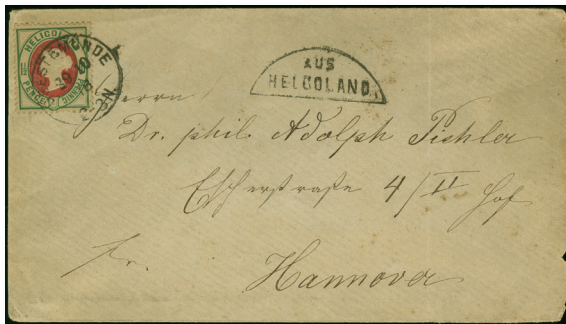 HELIGOLAND
PENCE
PFENNIG
AUS
HELGOLAND.
Herrn
Dr. phil. Adolph Pichler
Escherstraße 4/II Hof
fr.
Hannover